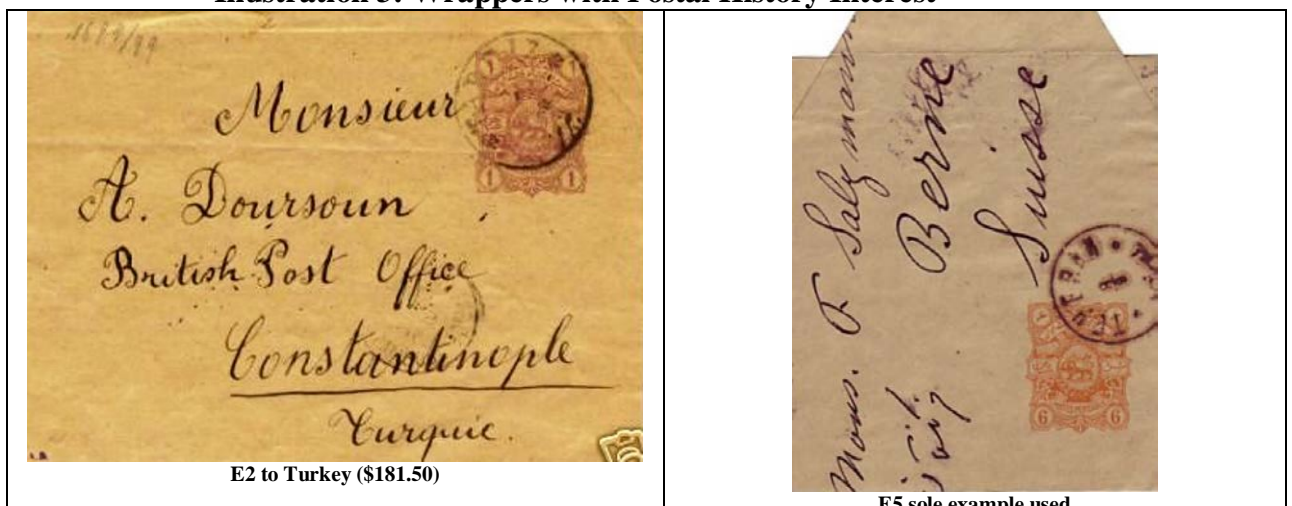 Illustration 3: Wrappers with Postal History Interest
1899/99
Monsieur
A. Doursoun
British Post Office
Constantinople
Turquie.
1 1
1 1
E2 to Turkey ($181.50)
Mons. F Salymann
Berne
Suisse
TEHERAN
6 6
E5 sole example used